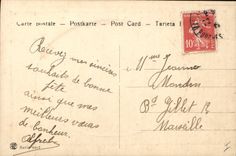 Carte postale – Postkarte – Post Card – Tarjeta
Recevez mes sincères
souhaits de bonne
fête
ainsi que mes
meilleurs vœux
de bonheur.
Alfred
Mme Jeanne
Mondin
Bd Gillet 12
Marseille
10